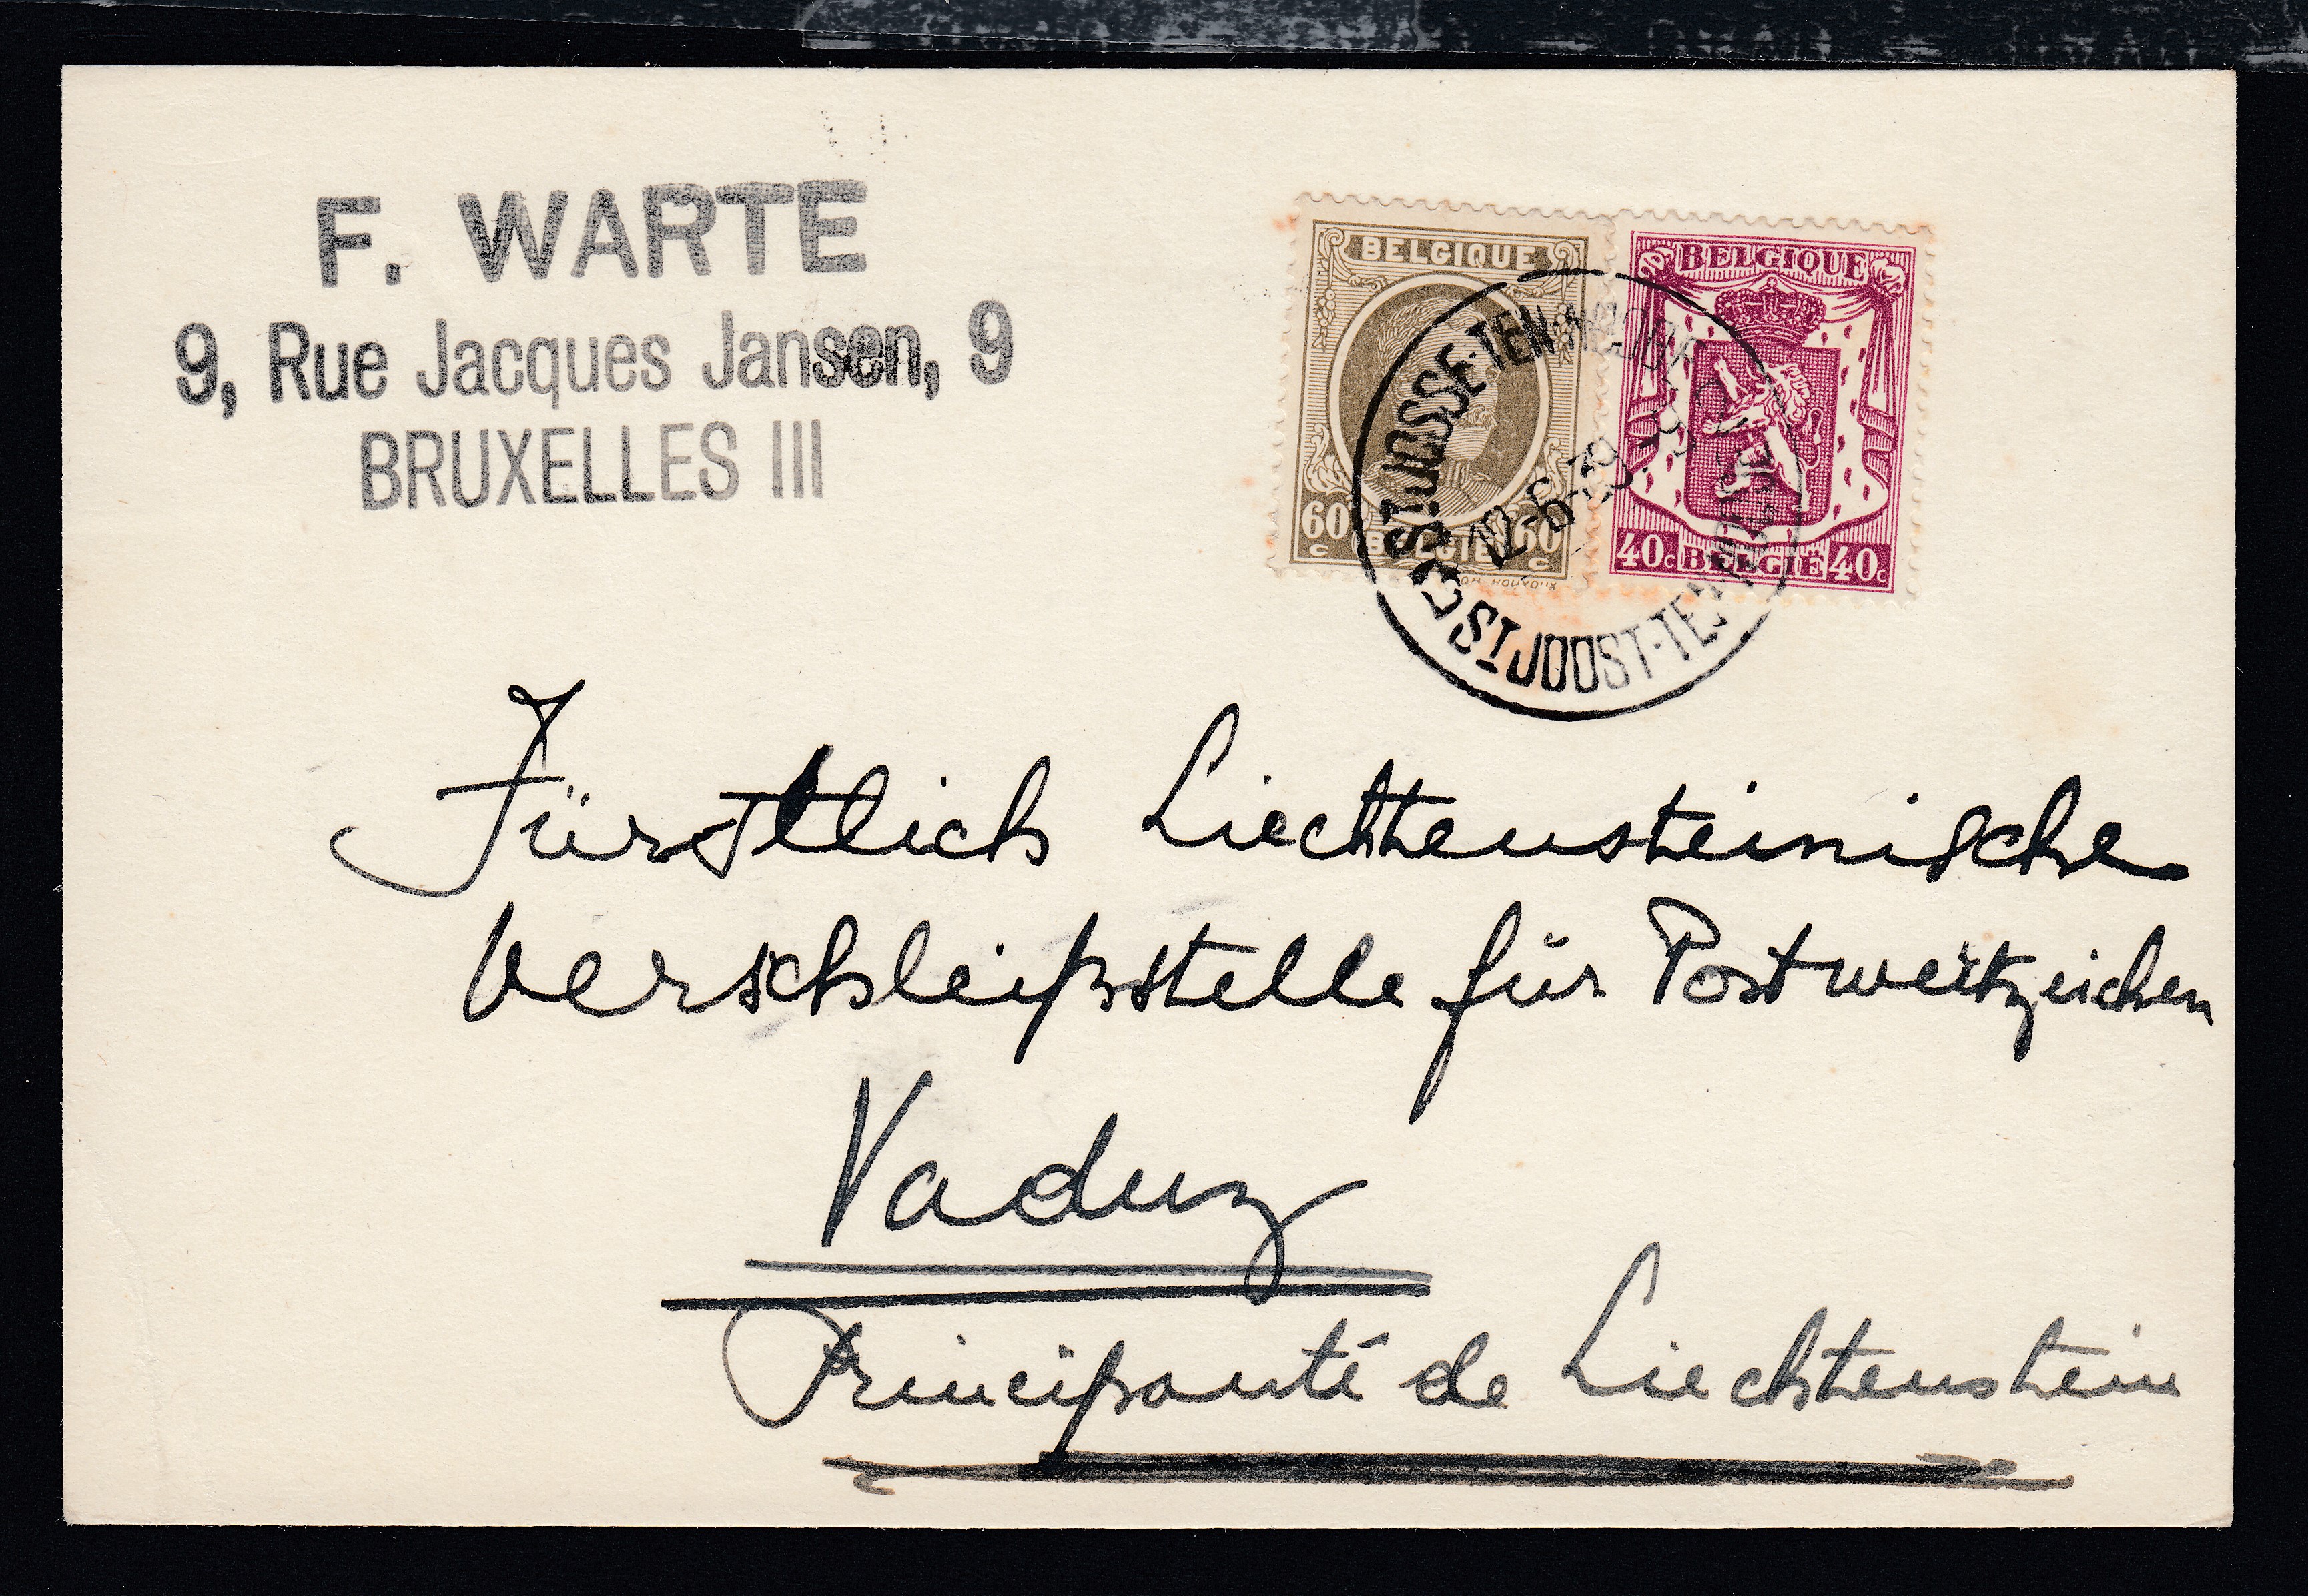 F. WARTE
9, Rue Jacques Jansen, 9
BRUXELLES III
BELGIQUE
60 c BELGIË 60 c
BELGIQUE
40c BELGIË 40c
ST JOSSE-TEN-NOODE 2
12-6-39
3 ST JOOST-TEN-NODE
Fürstlich Liechtensteinische
Verschleißstelle für Postwertzeichen
Vaduz
Principauté de Liechtenstein